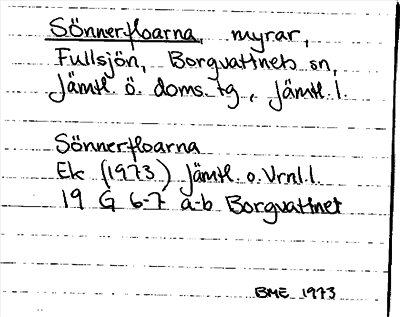 Sönnerfloarna, myrar,
Fullsjön, Borgvattnets sn,
Jämtl. ö. doms. tg, Jämtl. l.
Sönnerfloarna
Ek (1973) Jämtl. o. Vrnl. l.
19 G 6-7 a-b Borgvattnet
BME 1973